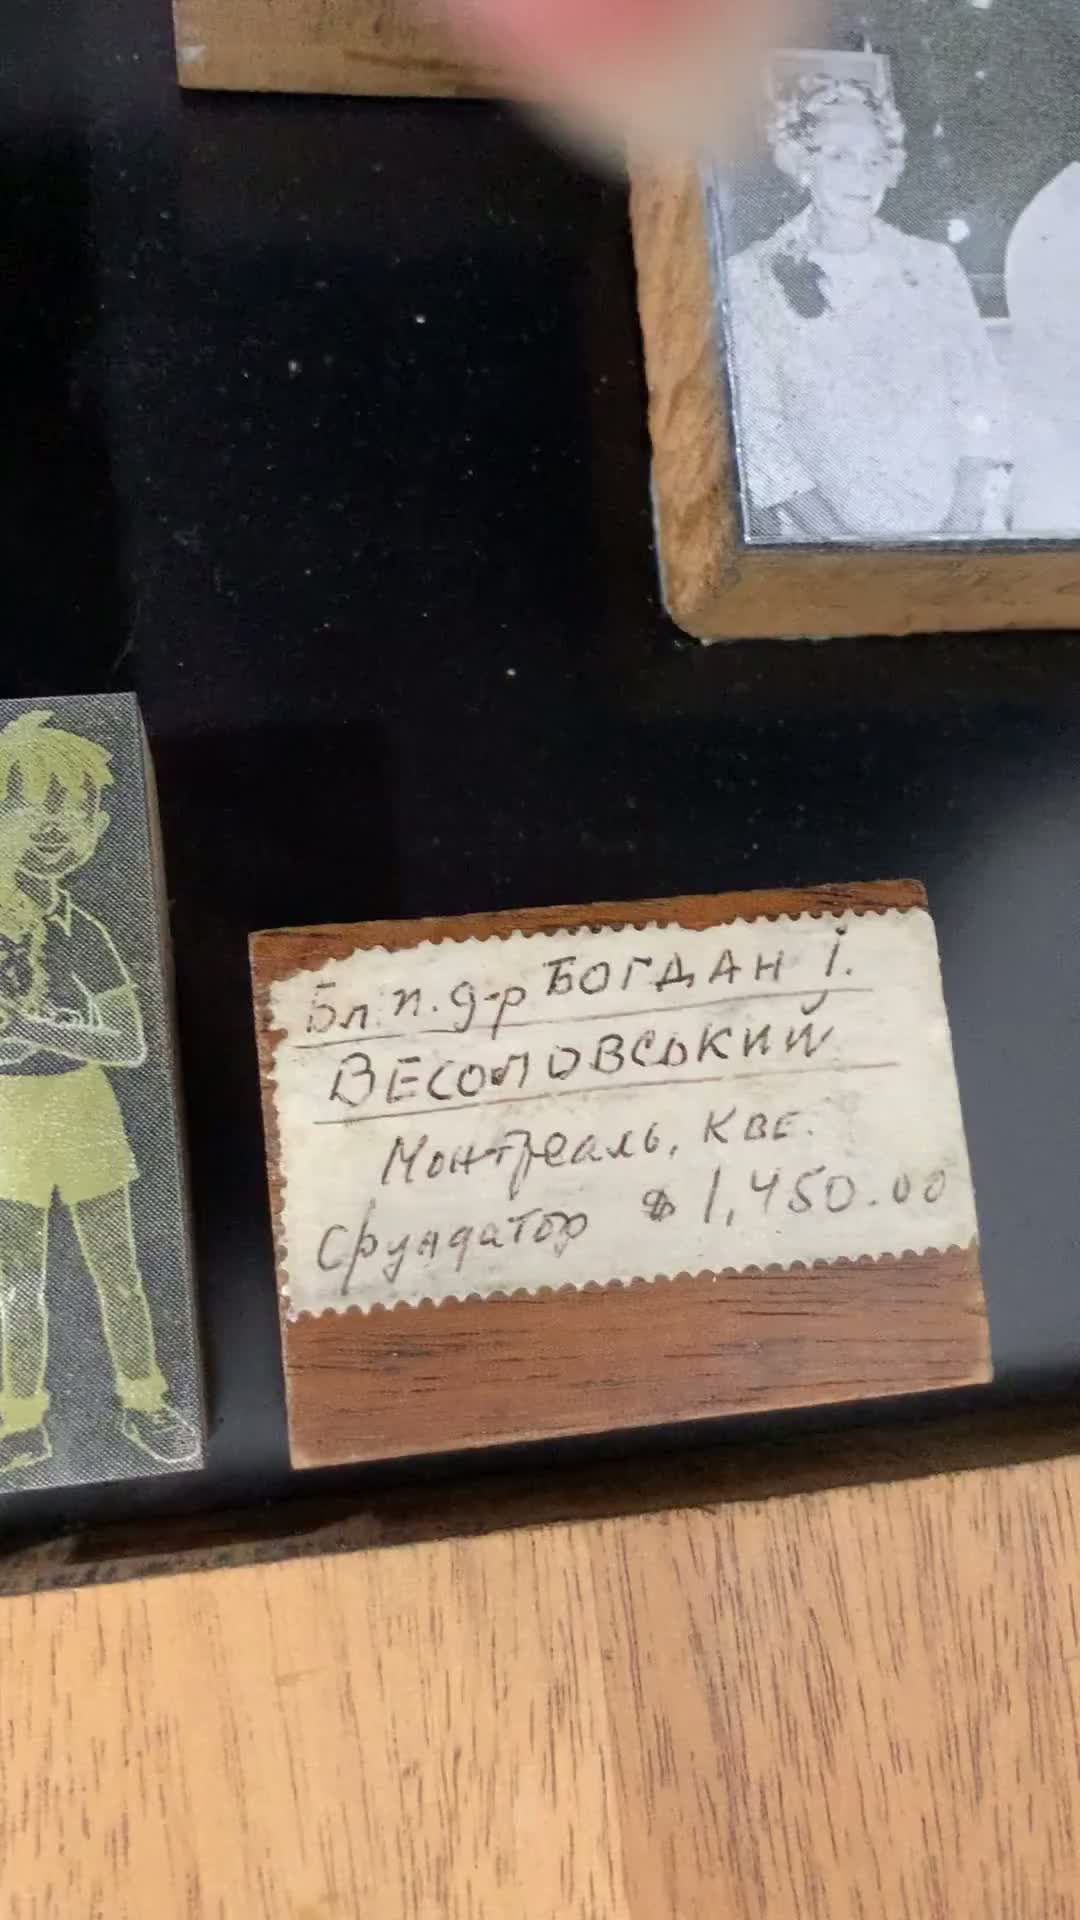 Бл. п. д-р БОГДАН І.
ВЕСОЛОВСЬКИЙ
Монтреаль, Кве.
Фундатор $1,450.00